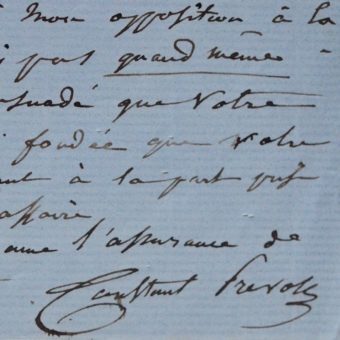 mon opposition à la
pas quand même -
suadé que Votre
fondée que votre
à la part
affaire
l'assurance de
Constant Prevost